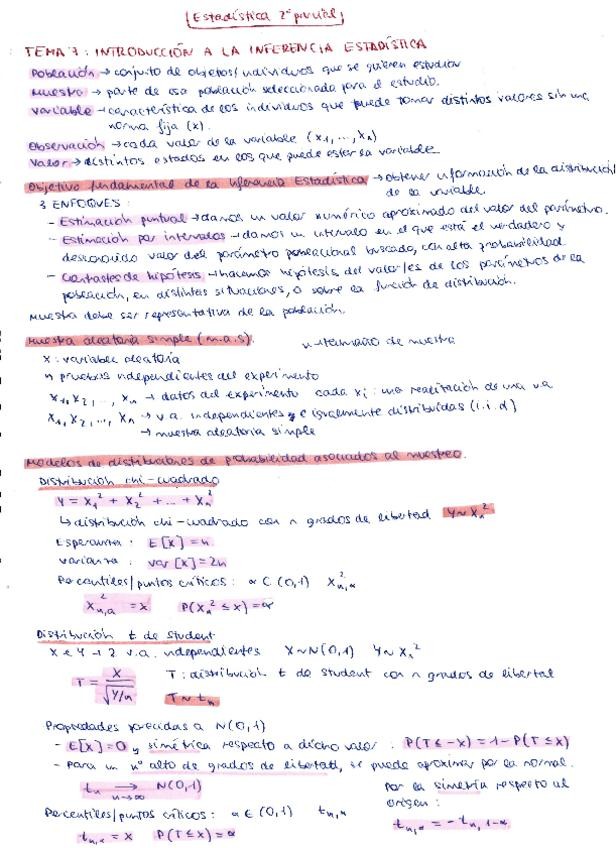 Estadística 2º parcial
TEMA 7: INTRODUCCIÓN A LA INFERENCIA ESTADÍSTICA
Población → conjunto de objetos/individuos que se quieren estudiar
Muestra → parte de esa población seleccionada para el estudio.
Variable → característica de los individuos que puede tomar distintos valores sin una
norma fija (x).
Observación → cada valor de la variable (x₁, ..., xₙ)
Valor → distintos estados en los que puede estar la variable
Objetivo fundamental de la Inferencia Estadística → obtener información de la distribución
de la variable.
3 ENFOQUES:
- Estimación puntual → damos un valor numérico aproximado del valor del parámetro.
- Estimación por intervalos → damos un intervalo en el que está el verdadero y
desconocido valor del parámetro poblacional buscado, con alta probabilidad.
- Contrastes de hipótesis → hacemos hipótesis del valor/es de los parámetros de la
población, en distintas situaciones, o sobre la función de distribución.
Muestra debe ser representativa de la población.
Muestra aleatoria simple (m.a.s). n → tamaño de muestra
X: variable aleatoria
n pruebas independientes del experimento
x₁, x₂, ..., xₙ → datos del experimento cada xᵢ: una realización de una va
X₁, X₂, ..., Xₙ → v.a. independientes e igualmente distribuidas (i.i.d)
→ muestra aleatoria simple
Modelos de distribuciones de probabilidad asociados al muestreo.
Distribución chi-cuadrado
Y = X₁² + X₂² + ... + Xₙ²
↳ distribución chi-cuadrado con n grados de libertad Y~Xₙ²
Esperanza: E[X]=n
varianza: var[X]=2n
Percentiles/puntos críticos: α ∈ (0,1) X²ₙ,α
X²ₙ,α = x P(Xₙ² ≤ x) = α
Distribución t de Student
X e Y → 2 v.a. independientes X~N(0,1) Y~Xₙ²
T = X / √(Y/n) T: distribución t de student con n grados de libertad
T~tₙ
Propiedades parecidas a N(0,1)
- E[X]=0 y simétrica respecto a dicho valor. P(T≤-x) = 1-P(T≤x)
- Para un nº alto de grados de libertad, se puede aproximar por la normal.
tₙ → N(0,1) n→∞
Por la simetría respecto al
origen:
Percentiles/puntos críticos: α ∈ (0,1) tₙ,α
tₙ,α = x P(T≤x)=α
tₙ,α = -tₙ,1-α